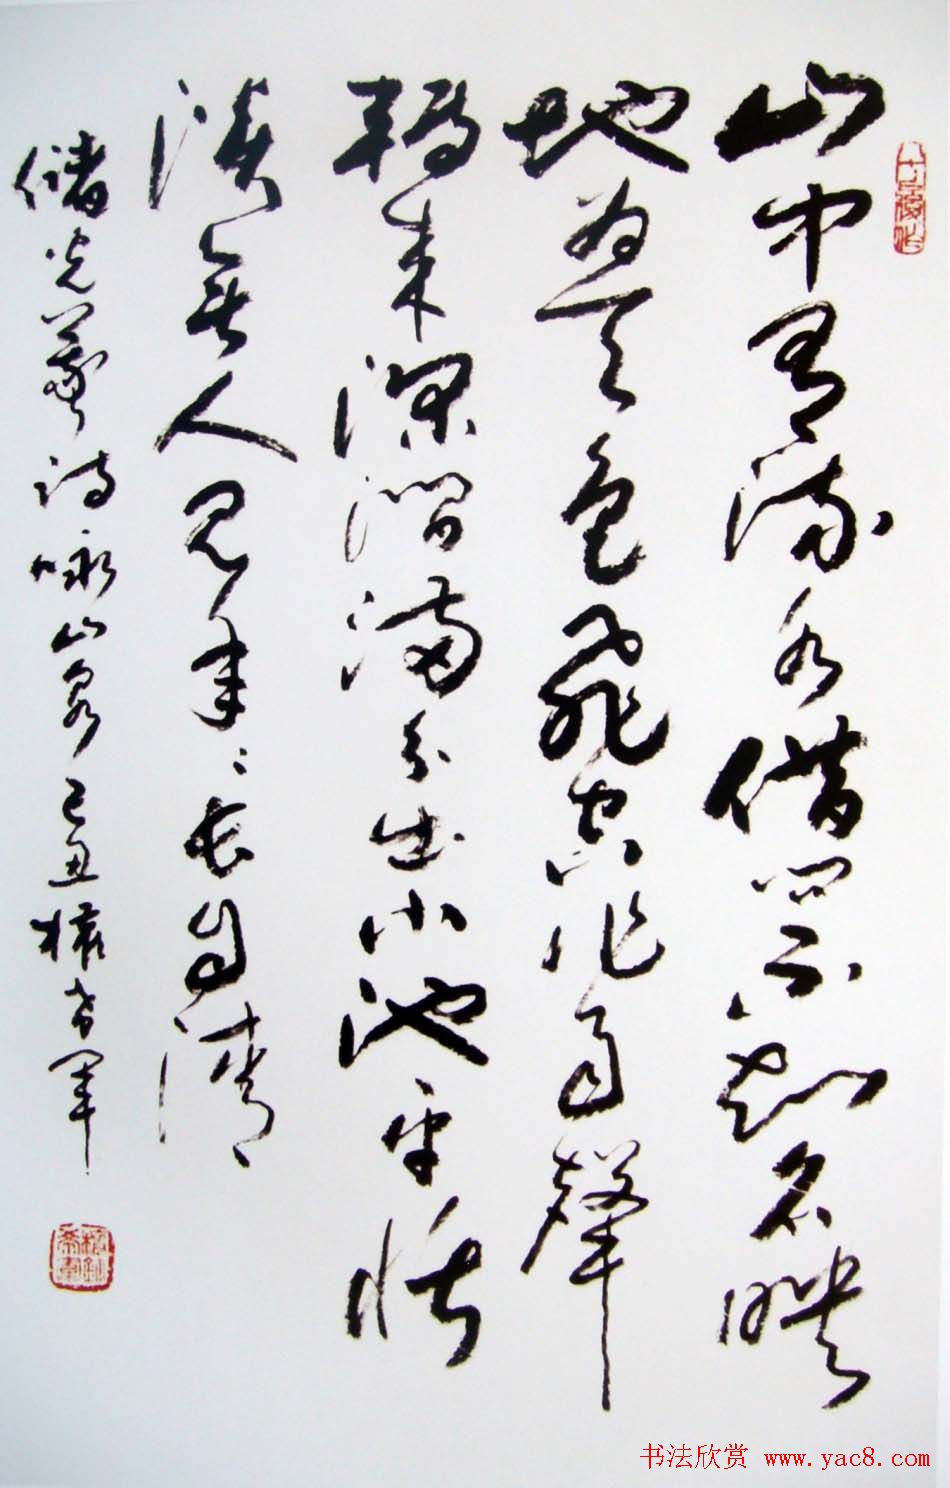 山中有流水借問不知名映
地為天色飛空作雨聲
轉來深澗滿分出小池平恬
淡無人見年々長自清
儲光羲詩咏山泉己丑權希軍
书法欣赏 www.yac8.com